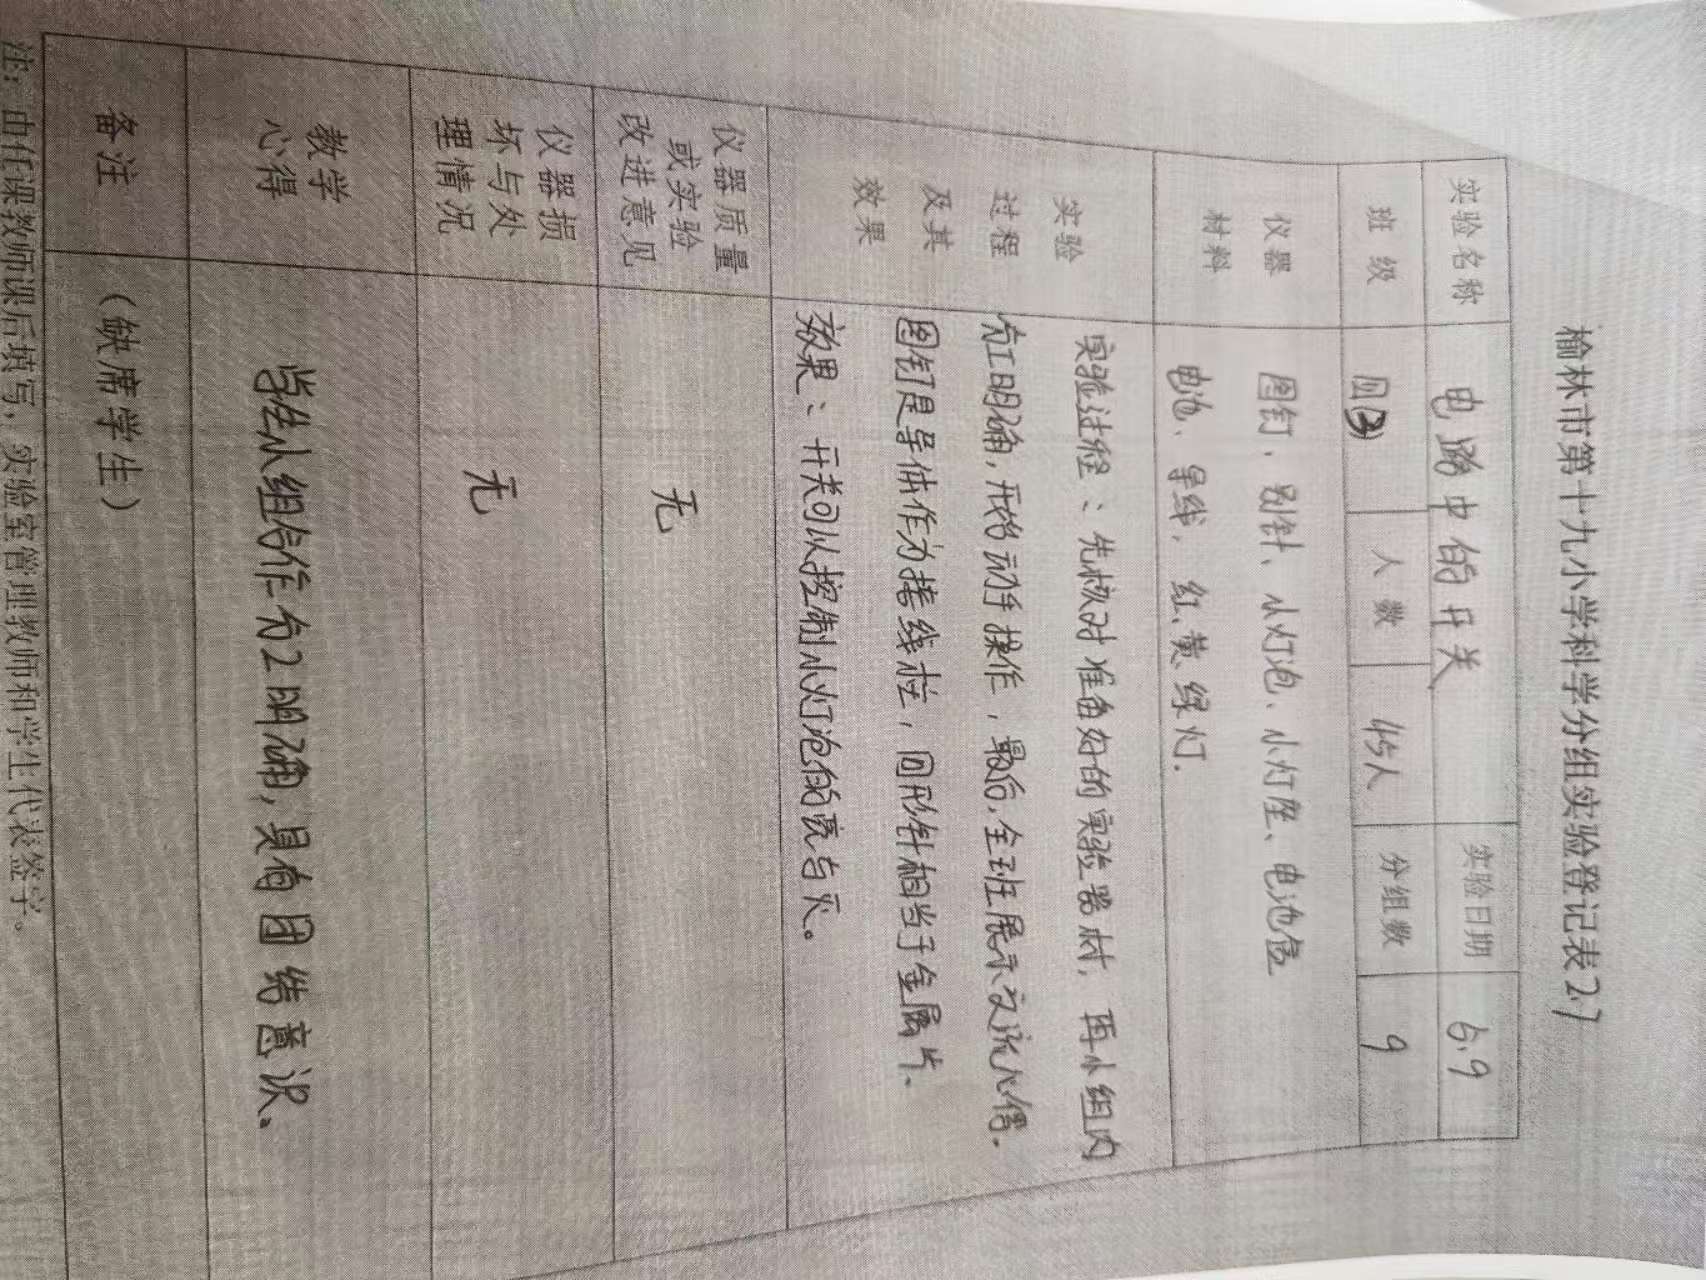 榆林市第十九小学科学分组实验登记表2.7
实验名称 电路中的开关 实验日期 5.9
班级 四(3) 人数 45人 分组数 9
仪器
材料
图钉、别针、小灯泡、小灯座、电池盒
电池、导线、红、黄、绿灯.
实验
过程
及其
效果
实验过程：先核对准备好的实验器材，再小组内
分工明确，开始动手操作，最后，全班展示交流心得.
图钉是导体作为接线柱，回形针相当于金属片、
效果：开关可以控制小灯泡的亮与灭。
仪器质量
或实验
改进意见
无
仪器损
坏与处
理情况
无
教学
心得
学生小组合作分工明确，具有团结意识、
备注
（缺席学生）
注：由任课教师课后填写，实验室管理教师和学生代表签字。